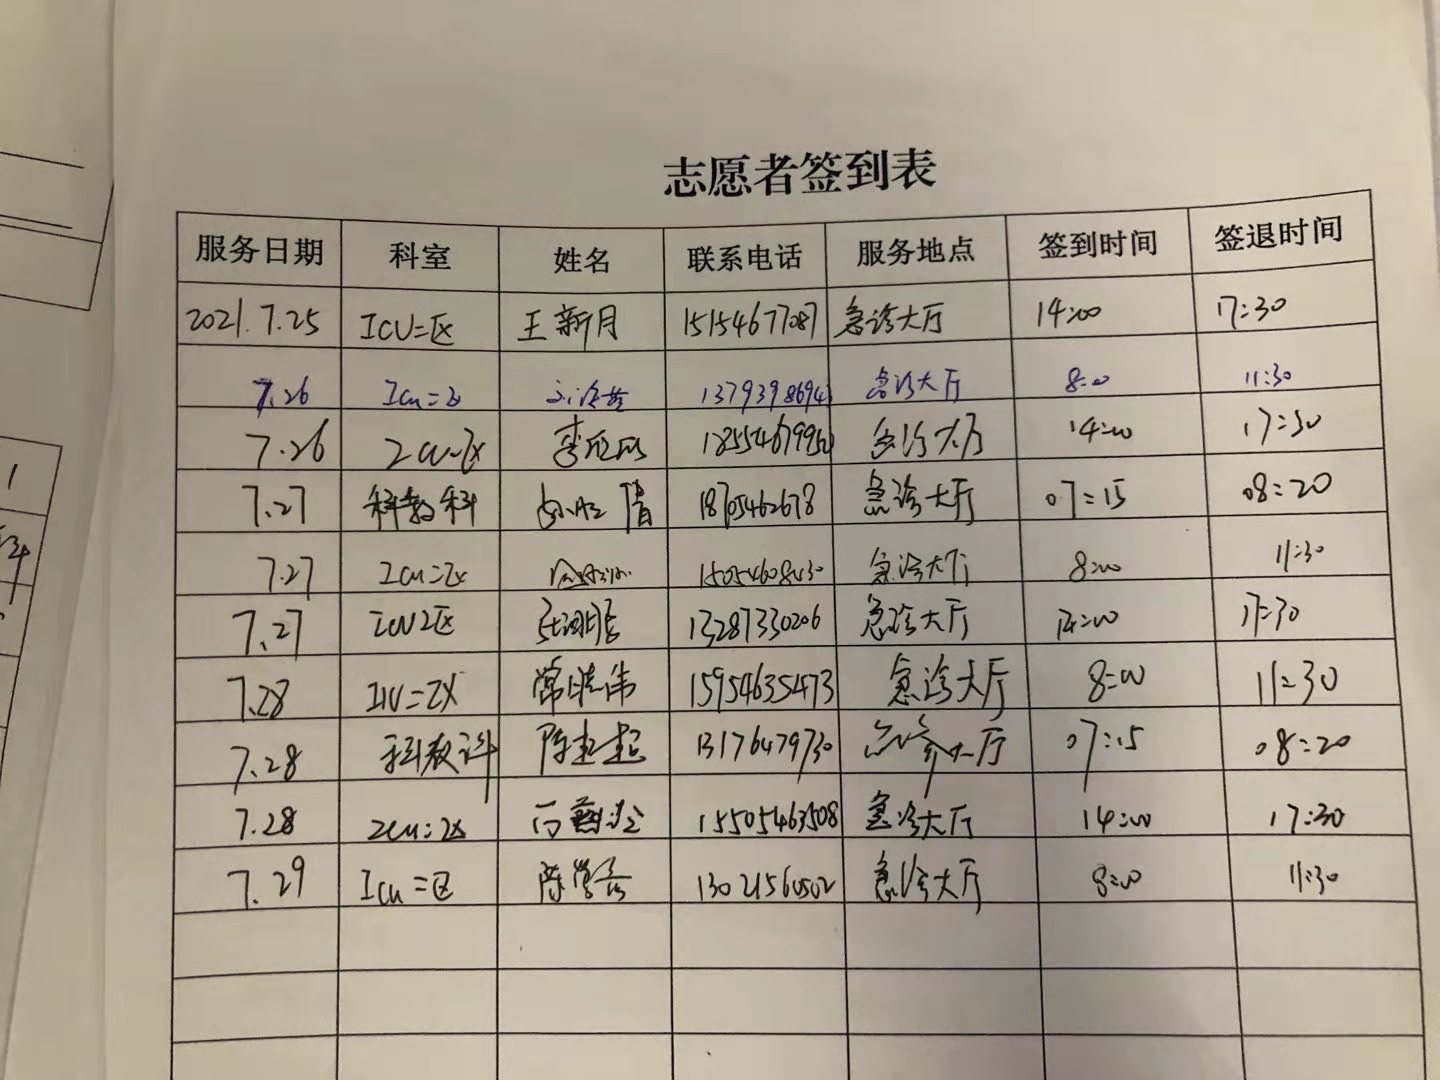 志愿者签到表
服务日期 科室 姓名 联系电话 服务地点 签到时间 签退时间
2021.7.25 ICU二区 王新月 15154677087 急诊大厅 14:00 17:30
7.26 Icu二区 急诊大厅 8:00 11:30
7.26 ICU二区 急诊大厅 14:00 17:30
7.27 科教科 急诊大厅 07:15 08:20
7.27 ICU二区 15054608430 急诊大厅 8:00 11:30
7.27 ICU2区 13287330206 急诊大厅 14:00 17:30
7.28 ICU二区 常晓伟 15954635473 急诊大厅 8:00 11:30
7.28 科教科 13176479730 急诊大厅 07:15 08:20
7.28 ICU二区 15505463508 急诊大厅 14:00 17:30
7.29 Icu二区 13021560502 急诊大厅 8:00 11:30